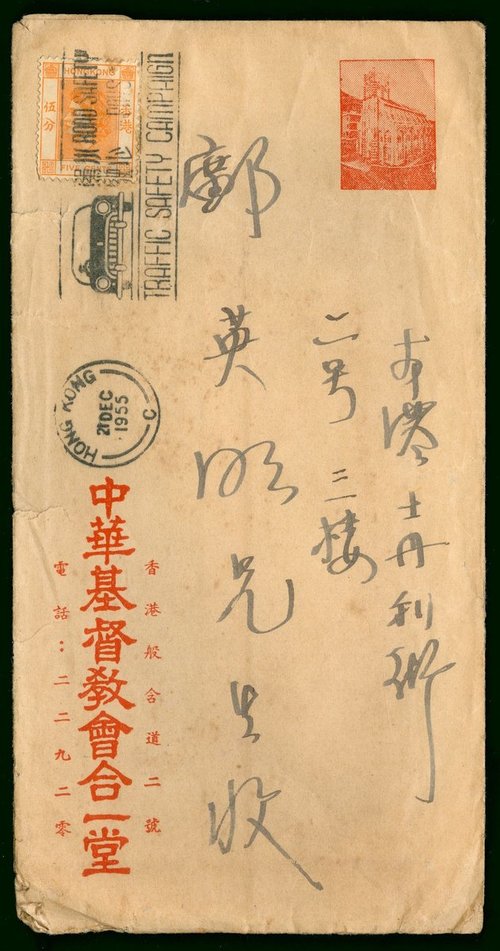 本港士丹利街
三樓
鄺英明先生收
香港般含道二號
中華基督敎會合一堂
電話：二二九二零
HONG KONG
香港
伍分
ROAD SAFETY
TRAFFIC SAFETY CAMPAIGN
HONG KONG
21 DEC
1955
C